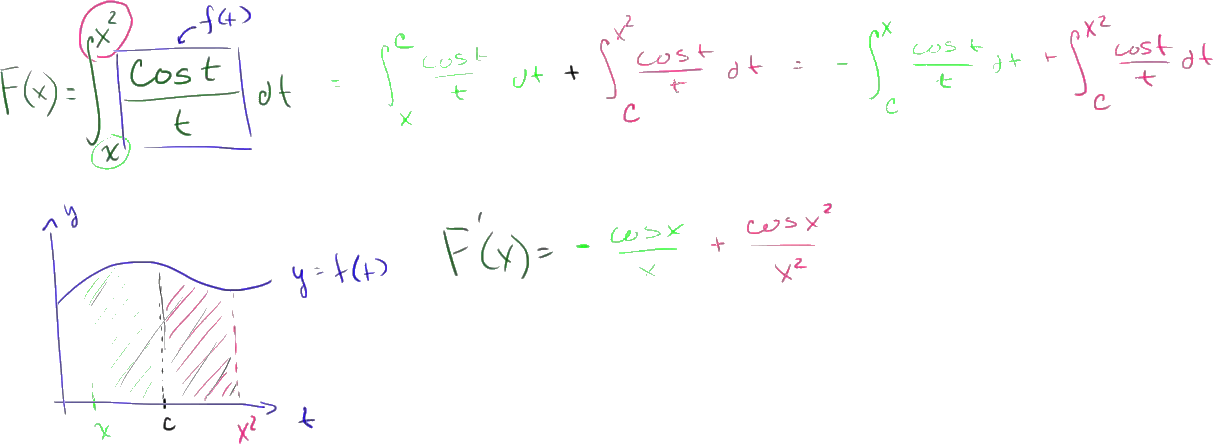 f(t)
F(x) = ∫_x^{x²} cos t / t dt = ∫_x^c cos t / t dt + ∫_c^{x²} cos t / t dt = - ∫_c^x cos t / t dt + ∫_c^{x²} cos t / t dt
y
F'(x) = - cos x / x + cos x² / x²
y = f(t)
x c x² t